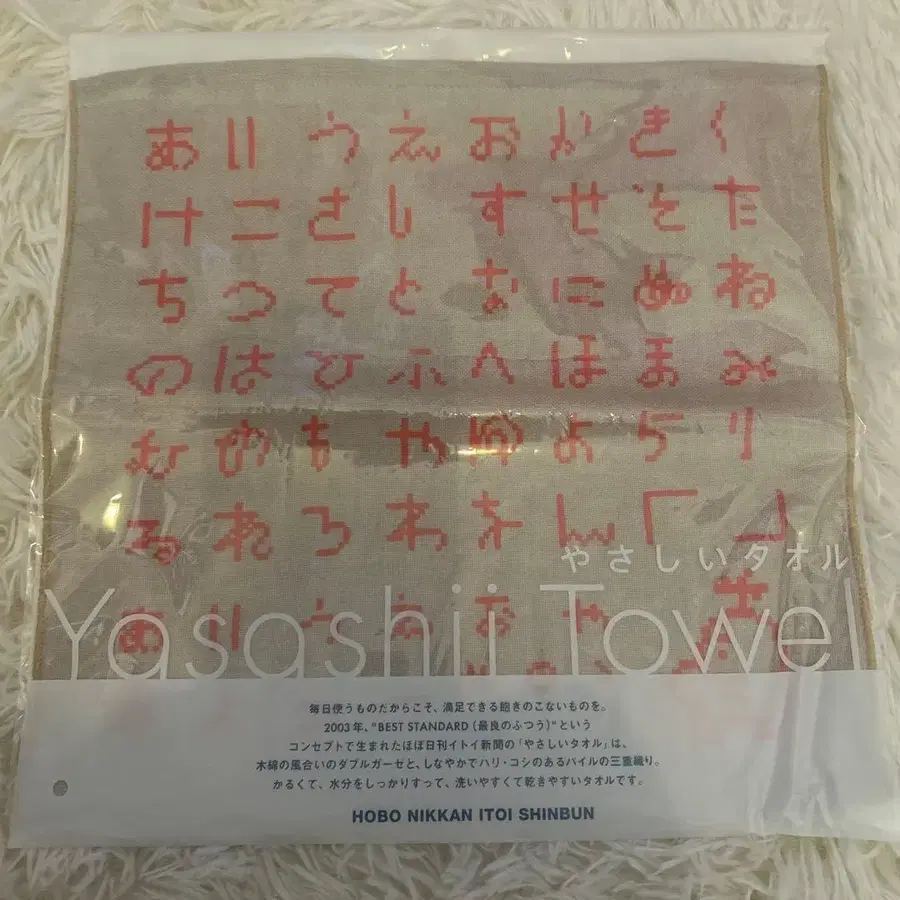 あ い う え お か き く
け こ さ し す せ そ た
ち つ て と な に ぬ ね
の は ひ ふ へ ほ ま み
む め も や ゆ よ ら り
る れ ろ わ を ん 「 」
やさしいタオル
ぁ ぃ ぅ ぇ ぉ ゃ
Yasashii Towel
毎日使うものだからこそ、満足できる飽きのこないものを。
2003年、"BEST STANDARD（最良のふつう）"という
コンセプトで生まれたほぼ日刊イトイ新聞の「やさしいタオル」は、
木綿の風合いのダブルガーゼと、しなやかでハリ・コシのあるパイルの三重織り。
かるくて、水分をしっかりすって、洗いやすくて乾きやすいタオルです。
HOBO NIKKAN ITOI SHINBUN